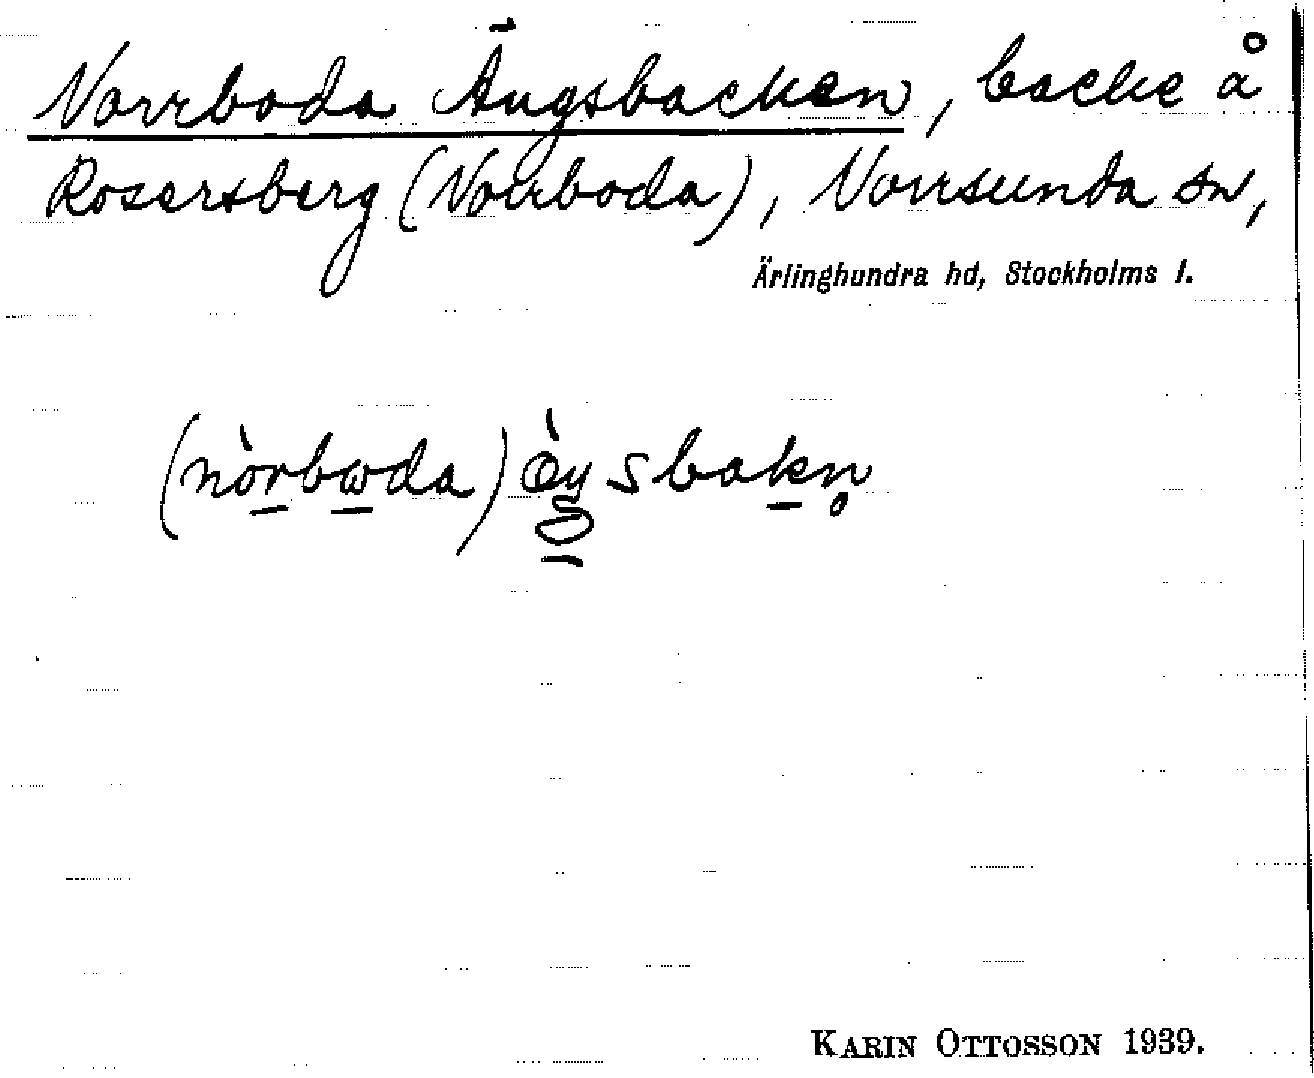 Norrboda Ängsbacken, backe å
Rosersberg (Norrboda), Norrsunda sn,
Ärlinghundra hd, Stockholms l.
(nòrbωda) sbakn̥
KARIN OTTOSSON 1939.